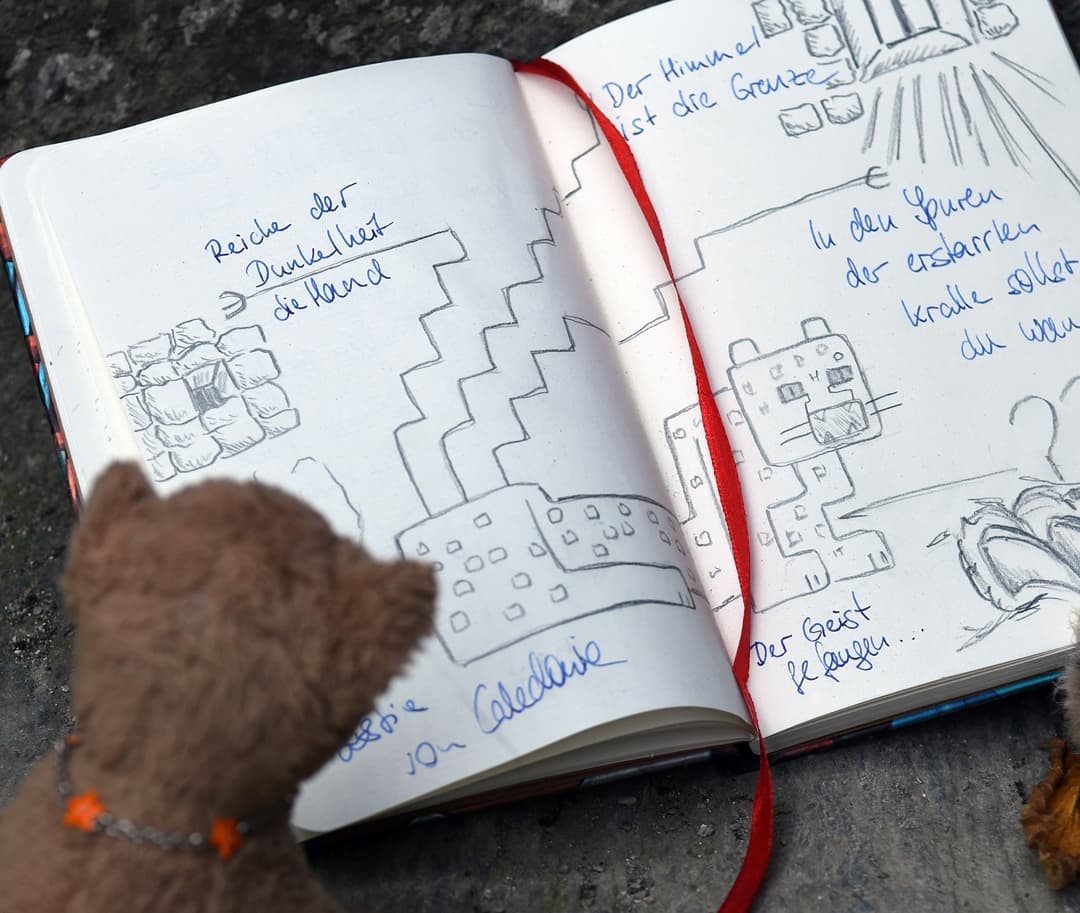 Reiche der
Dunkelheit
die Hand
von Caledonia
Der Himmel
ist die Grenze
In den Spuren
der erstarrten
Kralle sollst
du wan
Der Geist
gefangen...